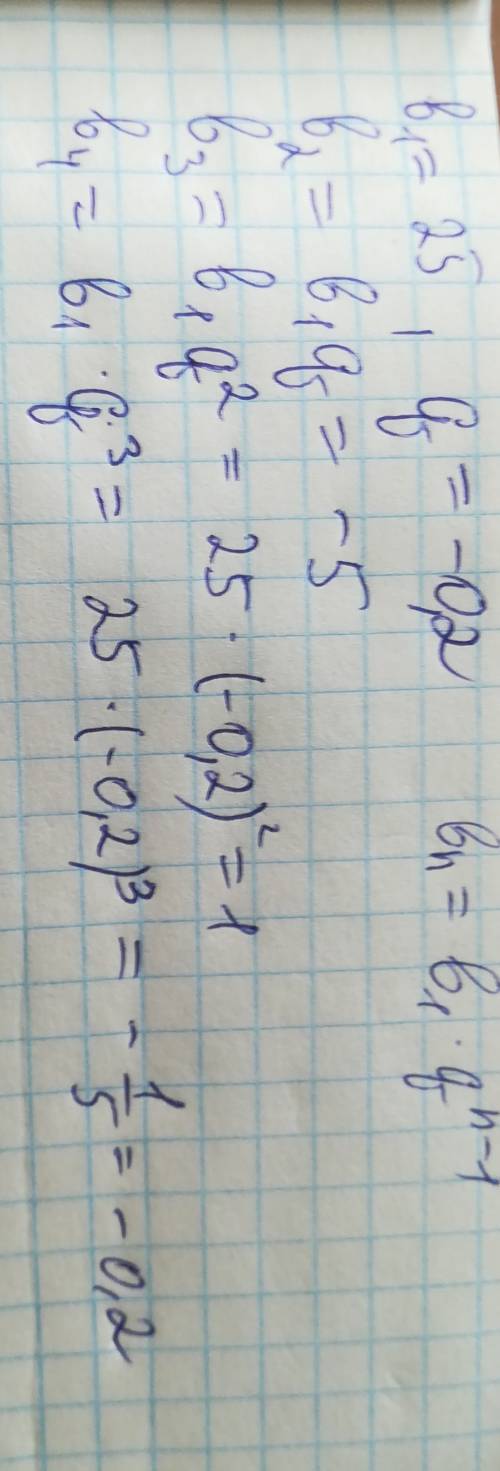 b₁ = 25, q = -0,2 bₙ = b₁ · qⁿ⁻¹
b₂ = b₁q = -5
b₃ = b₁q² = 25 · (-0,2)² = 1
b₄ = b₁ · q³ = 25 · (-0,2)³ = -1/5 = -0,2